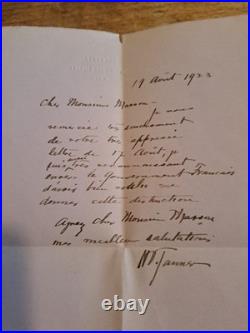 19 Août 1923
Cher Monsieur Masson
je vous
remercie très sincèrement
de votre très appréciée
lettre de 17 Août, je
suis très reconnaissant
envers le Gouvernement Français
d'avoir bien voulu me
donner cette distinction
Agréez cher Monsieur Masson
mes meilleur salutations
HOTanner